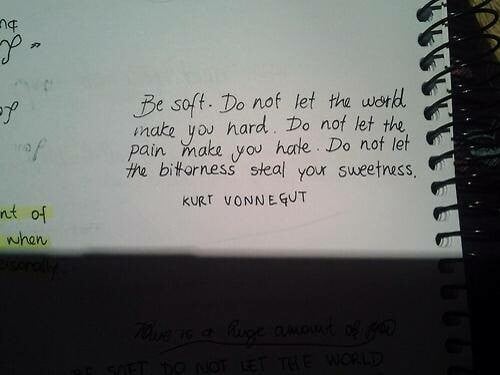 Be soft. Do not let the world
make you hard. Do not let the
pain make you hate. Do not let
the bitterness steal your sweetness.
KURT VONNEGUT
nt of
when
There is a huge amount of
BE SOFT DO NOT LET THE WORLD